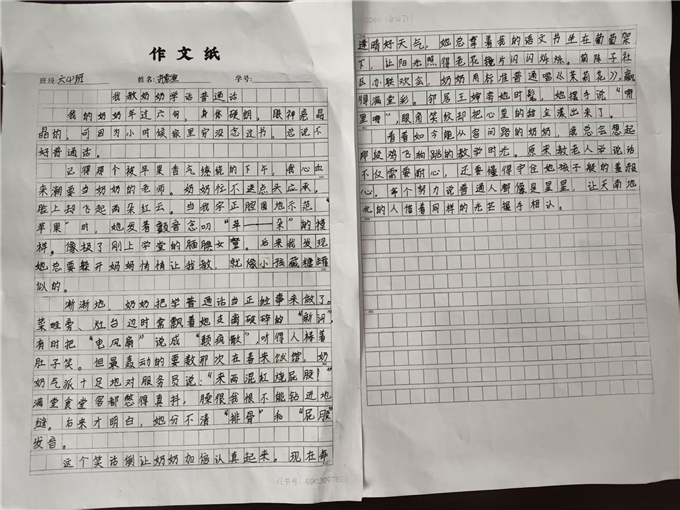 作文纸
班级：六(4)班 姓名： 学号：
我教奶奶学说普通话
我的奶奶年过六旬，身体硬朗，眼神亮晶
晶的，可因为小时候家里穷没念过书，总说不
好普通话。
记得那个被苹果香气缭绕的下午，我心血
来潮要当奶奶的老师。奶奶忙不迭点头应承，
脸上却飞起两朵红云。当我字正腔圆地示范"
苹果"时，她发着颤音念叨"苹——朵"的模
样，像极了刚上学堂的腼腆女娃。后来我发现
她总要躲开妈妈悄悄让我教，就像小孩藏糖罐
似的。
渐渐地，奶奶把学普通话当正经事来做了。
菜畦旁、灶台边时常飘着她支离破碎的"新词"，
有时把"电风扇"说成"颠病散"，听得人捧着
肚子笑。但最轰动的要数那次在喜来饭馆，奶
奶气派十足地对服务员说："来两混红烧屁股！"
满堂食客都憋得直抖，臊得我恨不能钻进地
缝。后来才明白，她分不清"排骨"和"屁股"
发音。
这个笑话倒让奶奶加倍认真起来。现在每
逢晴好天气，她总拿着我的语文书坐在葡萄架
下，让阳光照得老花镜片闪闪烁烁。前阵子社
区办联欢会，奶奶用标准普通唱《茉莉花》，赢
得满堂彩。邻居王婶夸她时髦，她摆手说"哪
里哪"，眼角笑纹却把心里的甜全漾出来了。
看着如今能从容问路的奶奶，我总会想起
那段鸡飞狗跳的教学时光。原来教老人学说话
不仅需要耐心，还要懂得守住她孩子般的羞赧
心。每个努力说普通人都像是星星，让天南地
北的人借着同样的光芒握手相认。